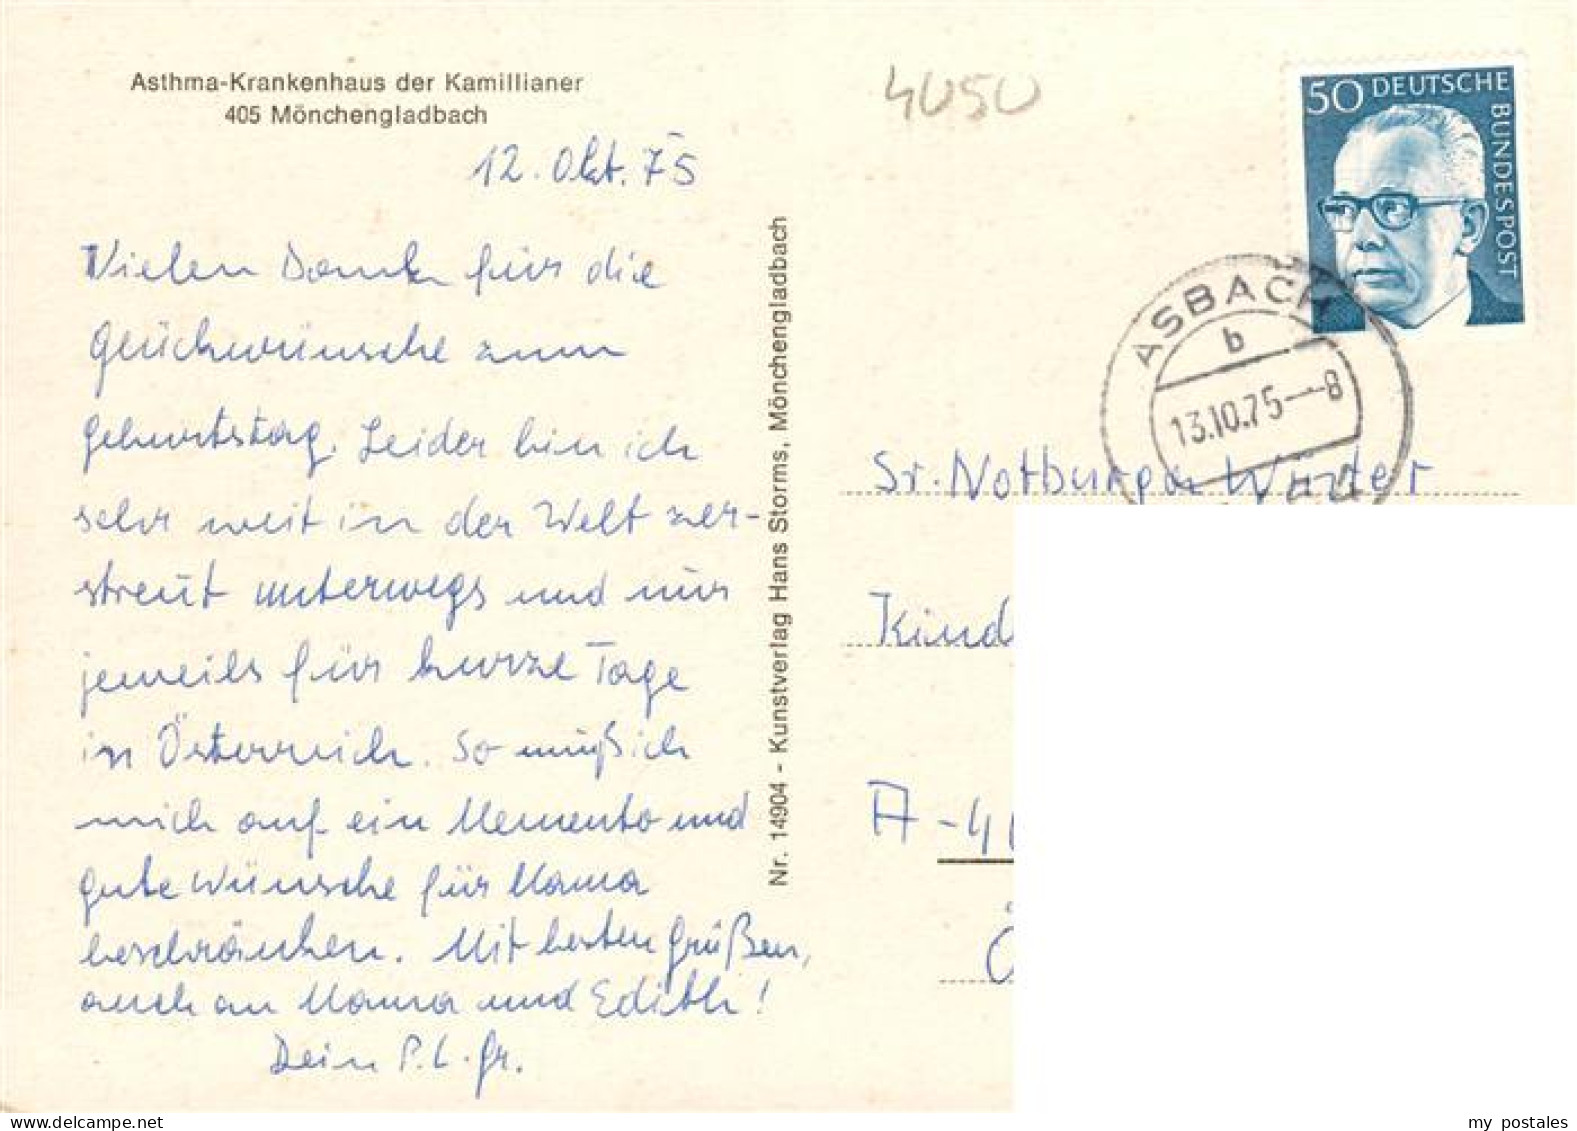 Asthma-Krankenhaus der Kamillianer
405 Mönchengladbach
12. Okt. 75
Vielen Dank für die
Glückwünsche zum
Geburtstag. Leider bin ich
sehr weit in der Welt zer-
streut unterwegs und nur
jeweils für kurze Tage
in Österreich. So muß ich
mich auf ein Memento und
gute Wünsche für Mama
beschränken. Mit besten Grüßen,
auch an Mama und Edith!
Dein P. L. Gr.
Nr. 14904 - Kunstverlag Hans Storms, Mönchengladbach
4050
50 DEUTSCHE
BUNDESPOST
ASBACH
b
13.10.75--8
Sr. Notburga
Kind
A-4
Ö
delcampe.net
my_postales